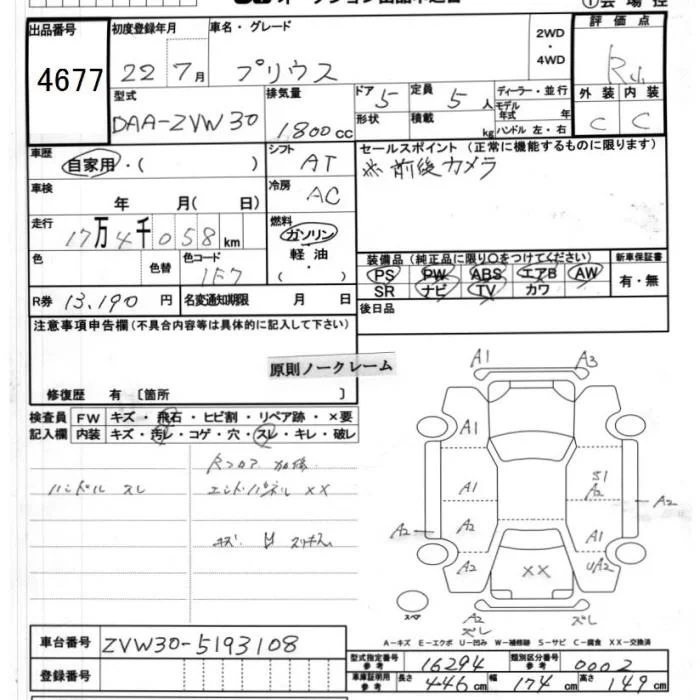 出品番号 初度登録年月 車名・グレード 2WD・4WD 評価点
4677 22 年 7月 プリウス R
型式 排気量 ドア 5 定員 5 人 ディーラー・並行 外装 内装
DAA-ZVW30 1800cc 形状 積載 kg モデル年式 年 C C
ハンドル 左・右
車歴 シフト セールスポイント(正常に機能するものに限ります)
自家用・( ) AT ※前後カメラ
車検 年 月( 日) 冷房 AC
走行 燃料
17万4千058km ガソリン・軽油・( )
装備品(純正品に限り○をつけてください) 新車保証書
色 色替 色コード 1F7 PS PW ABS エアB AW 有・無
SR ナビ TV カワ
R券 13,190 円 名変通知期限 月 日 後日品
注意事項申告欄(不具合内容等は具体的に記入して下さい)
原則ノークレーム
修復歴 有 [箇所 ]
検査員記入欄 FW キズ・飛石・ヒビ割・リペア跡・×要
内装 キズ・汚レ・コゲ・穴・スレ・キレ・破レ
ハンドル スレ
エンドパネル XX
A1 A3
A1
A1 S1 A2
A2 A2 A1 A2
A2 XX UA2
A2 ズレ ズレ
スペア
A-キズ E-エクボ U-凹み W-補修跡 S-サビ C-腐食 XX-交換済
車台番号 ZVW30-5193108
登録番号
型式指定番号 参考 16294 類別区分番号 参考 0002
車庫証明用 参考 長さ 446cm 幅 174cm 高さ 149cm